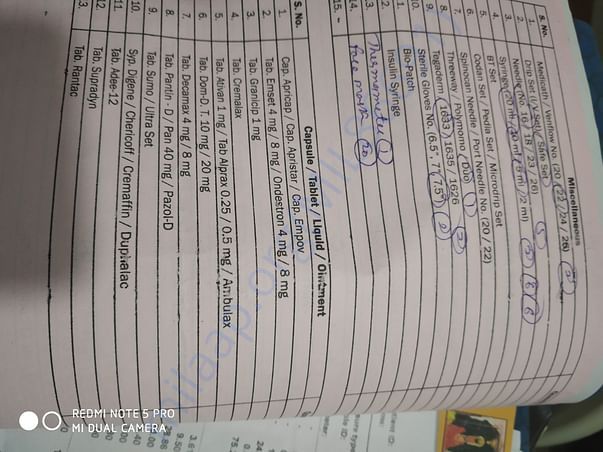 Miscellaneous
S. No.
1. Medicath / Venflow No. (20 / 22 / 24 / 26)
2. Drip Set (I.V Set) / Safe Set 5
3. Needle (No. 16 / 18 / 23 / 26)
Syringe (20 ml / 10 ml / 5 ml / 2 ml)
4. BT Set
5. Codan Set / Pedia Set / Microdrip Set
6. Spinocan Needle / Port Needle No. (20 / 22)
7. Threeway / Polymomo / Duo 1
8. Tegaderm (1633 / 1635 / 1626
9. Sterile Gloves No. (6.5", 7", 7.5")
10. Bio-Patch
1. Insulin Syringe
2. Thermometer 1
3. Face mask 20
14.
15. -
Capsule / Tablet / Liquid / Ointment
S. No.
1. Cap. Apricap / Cap. Apristar / Cap. Empov
2. Tab. Emset 4 mg / 8 mg / Ondestron 4 mg / 8 mg
3. Tab. Granicip 1 mg
4. Tab. Cremalax
5. Tab. Ativan 1 mg / Tab Alprax 0.25 / 0.5 mg / Ambulax
6. Tab. Dom-D. T. 10 mg / 20 mg
7. Tab. Decamax 4 mg / 8 mg
8. Tab. Pantin - D / Pan 40 mg / Pazol-D
9. Tab. Sumo / Ultra Set
10. Syp. Digene / Chericoff / Cremaffin / Duphalac
11. Tab. Adee-12
12. Tab. Supradyn
3. Tab. Rantac
REDMI NOTE 5 PRO
MI DUAL CAMERA